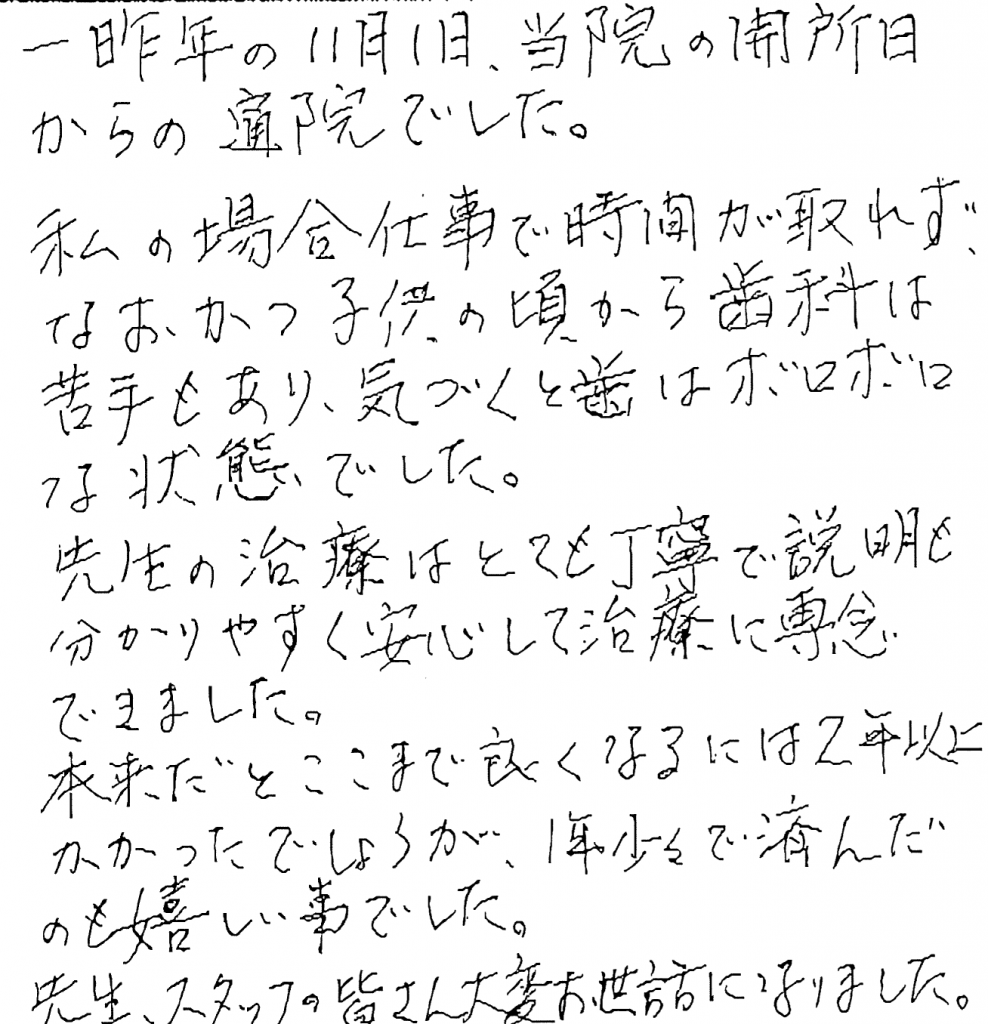 一昨年の11月1日、当院の開所日
からの通院でした。
私の場合仕事で時間が取れず、
なおかつ子供の頃から歯科は
苦手もあり、気づくと歯はボロボロ
な状態でした。
先生の治療はとても丁寧で説明も
分かりやすく安心して治療に専念
できました。
本来だとここまで良くなるには2年以上
かかったでしょうが、1年少々で済んだ
のも嬉しい事でした。
先生、スタッフの皆さん大変お世話になりました。